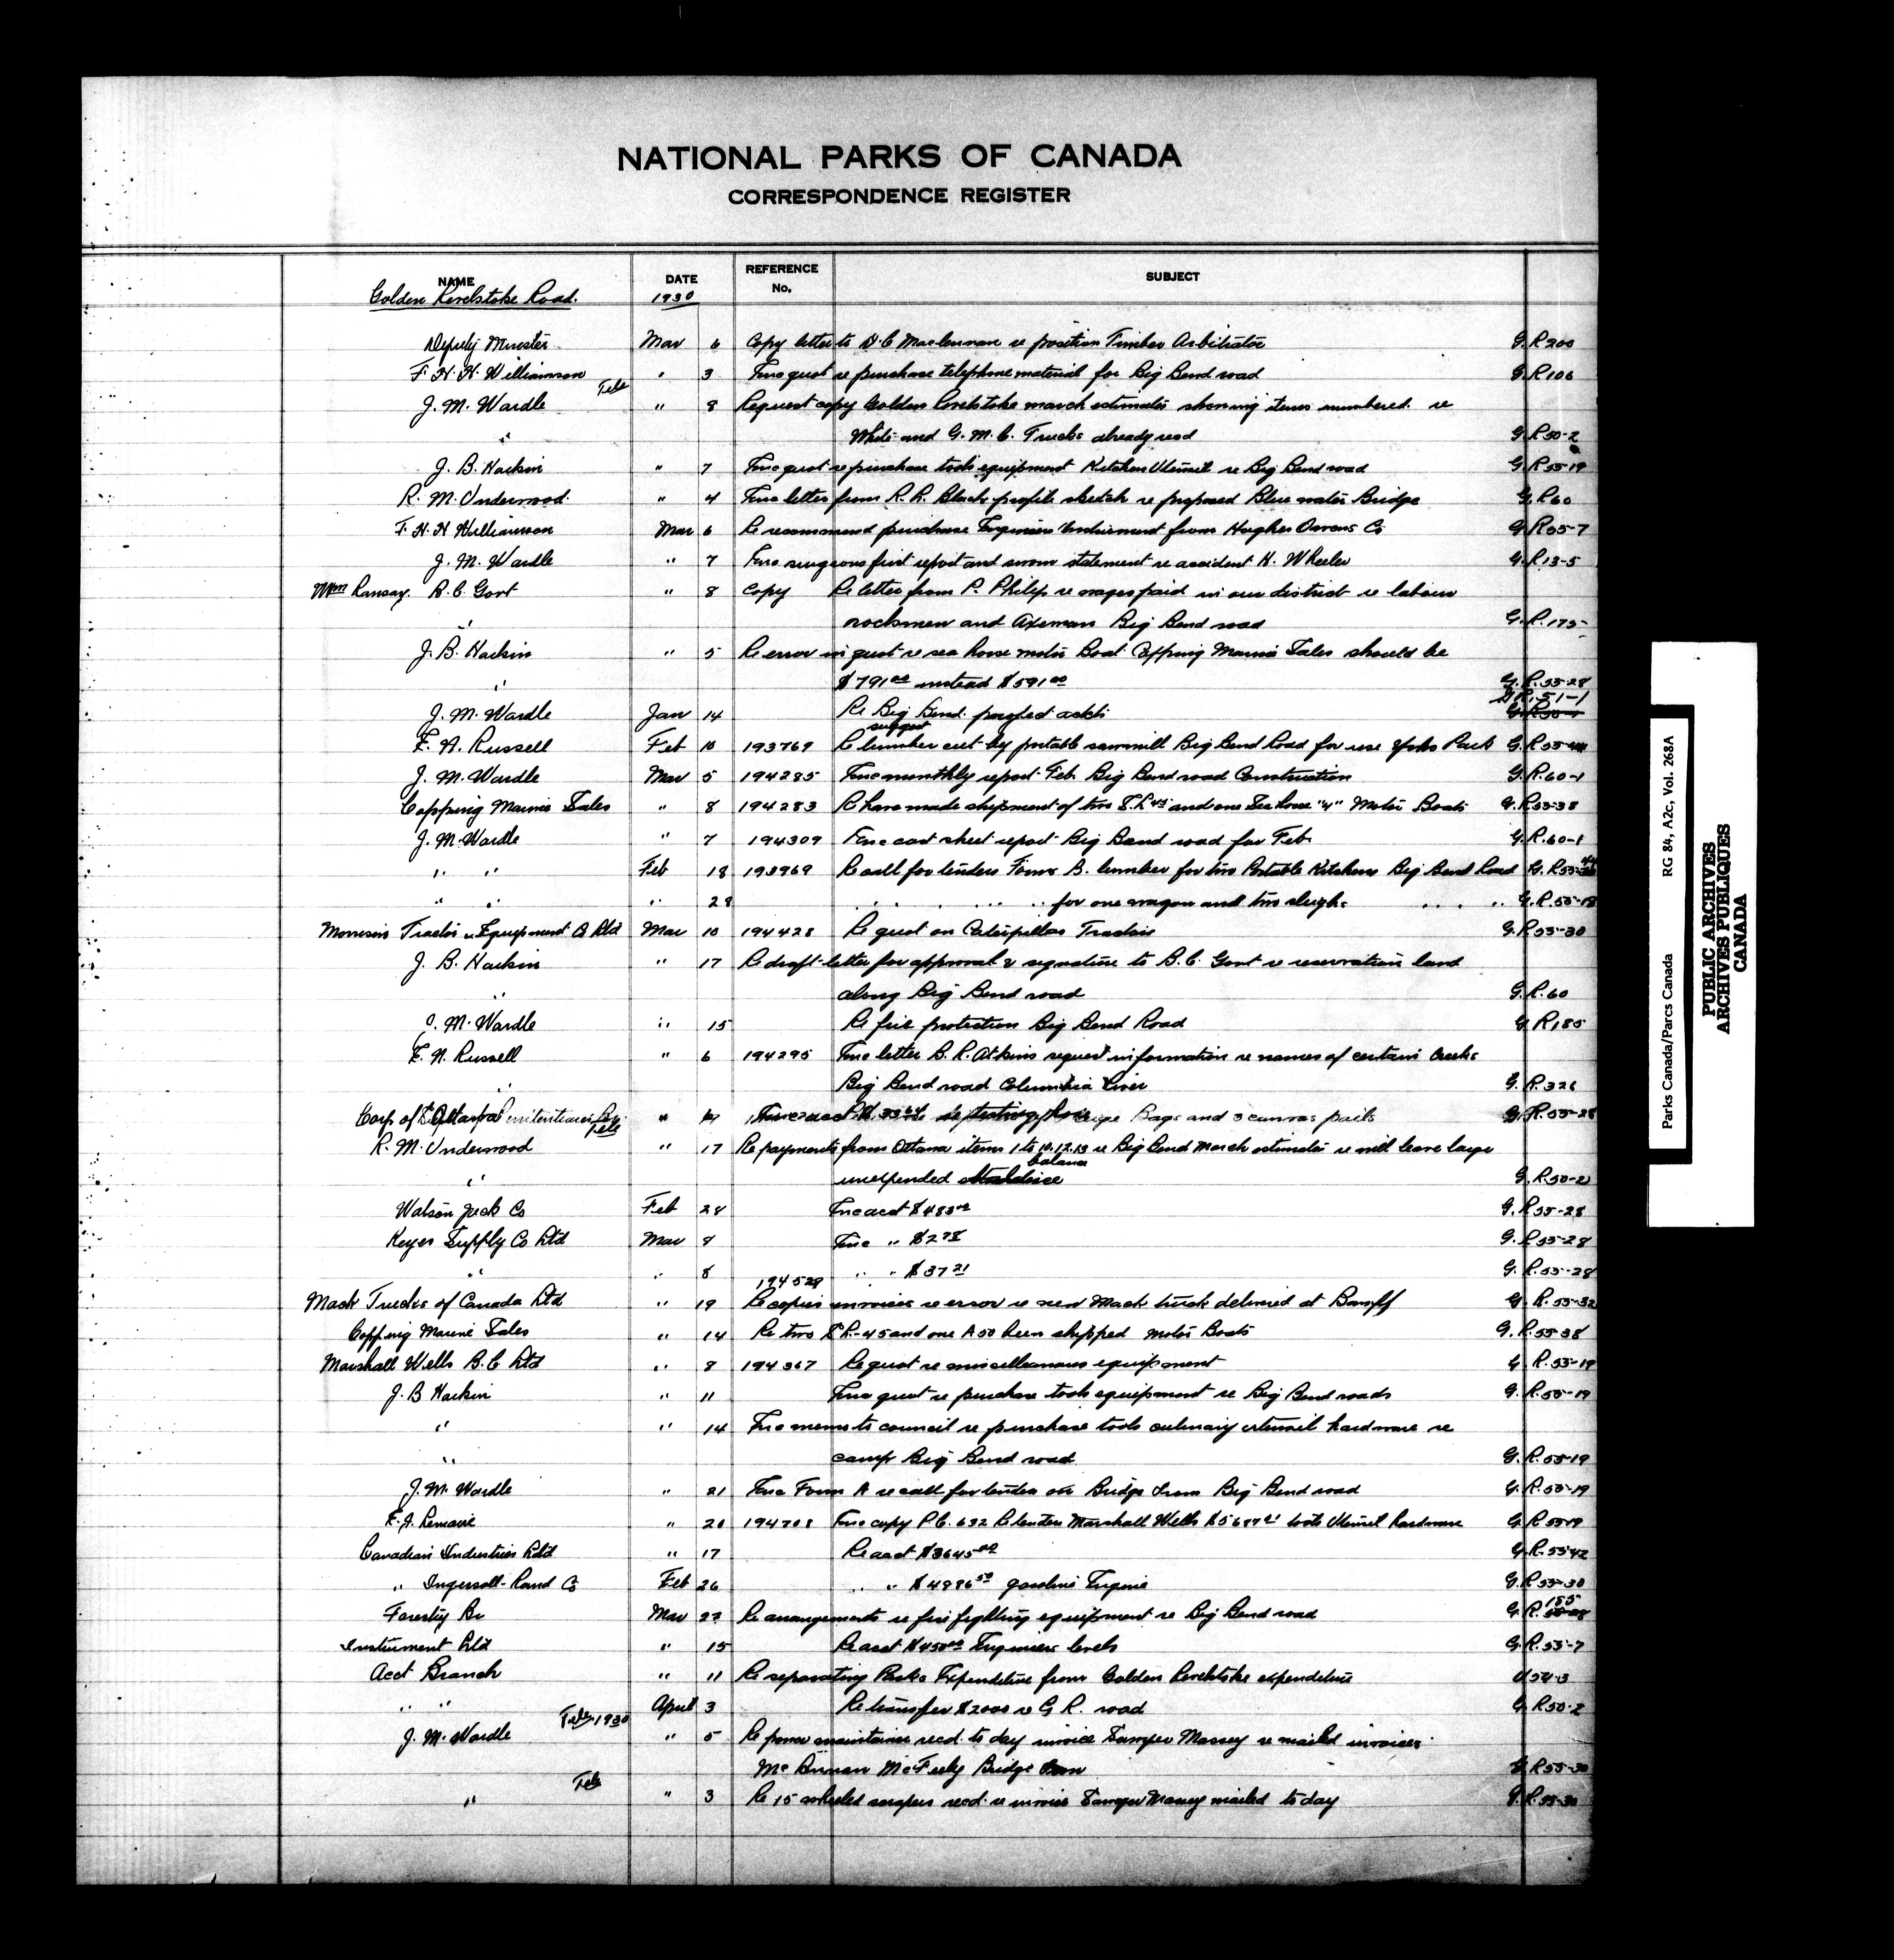 NATIONAL PARKS OF CANADA
CORRESPONDENCE REGISTER
NAME DATE REFERENCE No. SUBJECT
Golden Revelstoke Road. 1930
Deputy Minister Mar 6 Copy letter to D.C Maclennan re position Timber Arbitrator G.R 200
F. H. H. Williamson " 3 Enc quot re purchase telephone material for Big Bend road G.R 106
J. M. Wardle Tele " 8 Request copy Golden Revelstoke march estimates showing items numbered. re
" White and G. M. C. Trucks already read G.R 50-2
J. B. Harkin " 7 Enc quot re purchase tools equipment Kitchen Utensil re Big Bend road G.R 55-19
R. M. Underwood. " 4 Enc letter from R. R. Black profile sketch re proposed Blue water Bridge G.R 60
F. H. H Williamson Mar 6 Re recommend purchase Engineers Instrument from Hughes Owens Co G.R 55-7
J. M. Wardle " 7 Enc surgeons first report and sworn statement re accident H. Wheeler G.R 13-5
Wm Ramsay. B.C. Govt " 8 Copy Re letter from P. Philip re wages paid in our district re labour
" rocksmen and Axeman Big Bend road G.R. 175
J. B. Harkin " 5 Re error in quot re sea horse motor Boat Copping Marine Sales should be
" $791.00 instead $591.00 G.R. 55-28
J. M. Wardle Jan 14 Re Big Bend. payfed accts G.R. 51-1
F. H. Russell Feb 10 193769 Re suggest lumber cut by portable sawmill Big Bend Road for use Yoho Park G.R 55-44
J. M. Wardle Mar 5 194285 Enc monthly report Feb. Big Bend road Construction G.R. 60-1
Copping Marine Sales " 8 194283 Re have made shipment of two S.R 45 and one Sea horse "4" Motor Boats G.R 55-38
J. M. Wardle " 7 194309 Enc cost sheet report Big Bend road for Feb. G.R. 60-1
" " Feb 18 193969 Re call for tenders Form B. lumber for two Portable Kitchens Big Bend Road G.R 55-44
" " " 28 " " " " for one wagon and two sleighs " " " G.R. 55-18
Morrison Tractor & Equipment Co Ltd Mar 10 194428 Re quot on Caterpillar Tractors G.R 55-30
J. B. Harkin " 17 Re draft letter for approval & signature to B.C. Govt re reservation land
" along Big Bend road G.R. 60
J. M. Wardle " 15 Re fire protection Big Bend Road G.R 185
F. H. Russell " 6 194295 Enc letter B. R. Atkins request information re names of certain Creeks
" Big Bend road Columbia River G.R. 326
Bags and 3 canvas pails G.R. 55-28
R. M. Underwood Tele " 17 Re payments from Ottawa items 1 to 10.12.13 re Big Bend March estimates re will leave large
" unexpended balance G.R. 50-2
Watson Jack Co Feb 28 Enc acct $483.00 G.R 55-28
Keyes Supply Co Ltd Mar 8 Enc " $2.78 G.R. 55-28
" " 8 " " $37.21 G.R. 55-28
Mack Trucks of Canada Ltd " 19 194529 Re copies invoices re error re new Mack truck delivered at Banff G.R. 55-32
Copping Marine Sales " 14 Re two S.R-45 and one A50 been shipped motor Boats G.R. 55-38
Marshall Wells B.C Ltd " 8 194367 Re quot re miscellaneous equipment G.R. 55-19
J. B Harkin " 11 Enc quot re purchase tools equipment re Big Bend roads G.R. 55-19
" " 14 Enc memo to council re purchase tools culinary utensil hardware re
" camp Big Bend road G.R. 55-19
J. M. Wardle " 21 Enc Form A re call for tenders on Bridge Iron Big Bend road G.R. 55-19
F. J. Lemaire " 20 194708 Enc copy P.C. 632 Re tender Marshall Wells tools Utensil hardware G.R 55-19
Canadian Industries Ltd " 17 Re acct $3645.00 G.R. 55-42
" Ingersoll-Rand Co Feb 26 " " $4986.50 gasoline Engine G.R 55-30
Forestry Br Mar 22 Re arrangements re fire fighting equipment re Big Bend road G.R. 185
Instrument Ltd " 15 Re acct $450.00 Engineers levels G.R. 55-7
Acct Branch " 11 Re separating Parks Expenditure from Golden Revelstoke expenditure U 54-3
" " April 3 Re transfer $2000 re G R. road G.R 50-2
J. M. Wardle Tele 1930 " 5 Re power maintainer recd. to day invoice Sawyer Massey re mailed invoices
Mc Lennan McFeely Bridge Iron G.R 55-30
" Tele " 3 Re 15 wheeled scrapers recd. re invoice Sawyer Massey mailed to day G.R. 55-30
Parks Canada/Parcs Canada RG 84, A2c, Vol. 268A
PUBLIC ARCHIVES
ARCHIVES PUBLIQUES
CANADA